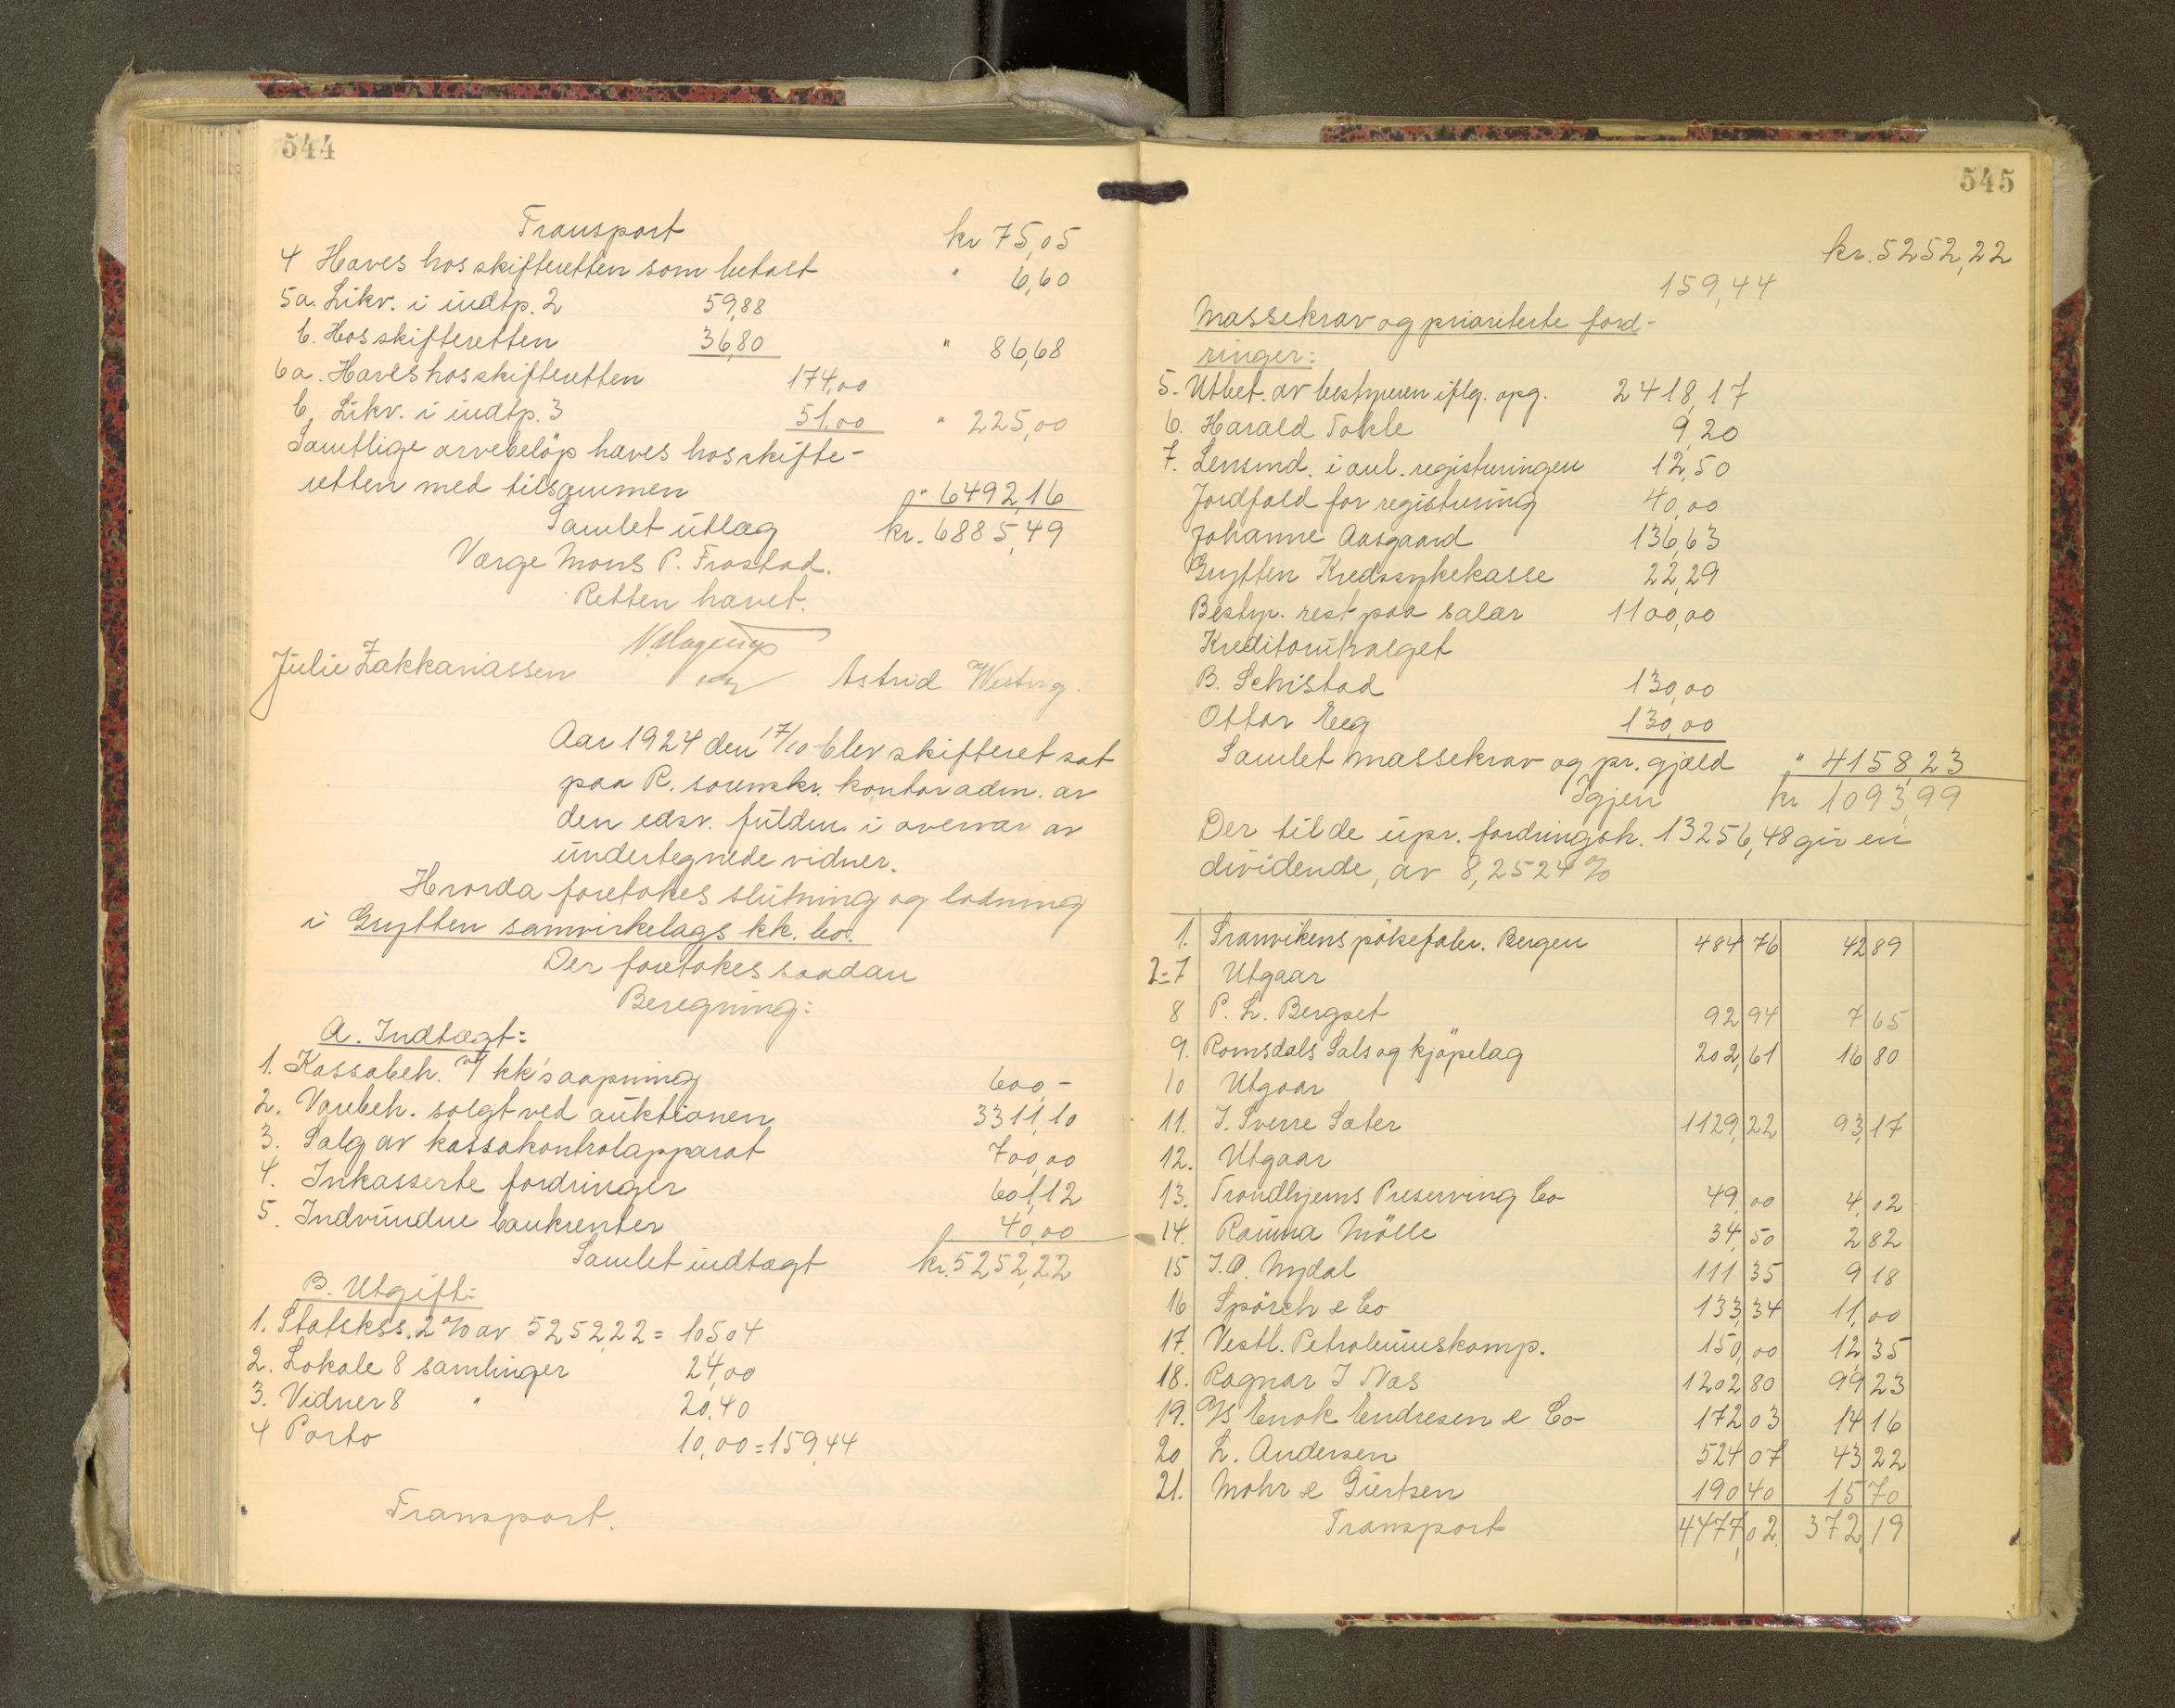 544
Transport kr 75,05
4 Haves hos skifteretten som betalt " 6,60
5a. Likv. i indtp. 2 59,88
b. Hos skifteretten 36,80 " 86,68
6a. Haves hos skifteretten 174,00
b, Likv. i indtp. 3 51,00 " 225,00
Samtlige arvebeløp haves hos skifte-
retten med tilsammen " 6492,16
Samlet utlæg kr. 6885,49
Værge Mons P. Frostad.
Retten hævet.
Julie Zakkariassen Astrid
Aar 1924 den 17/10 blev skifteret sat
paa R. sorenskr. kontor adm. av
den edsv. fuldm. i overvær av
undertegnede vidner.
Hvorda foretokes slutning og lodning
i Grytten samvirkelags kk. bo.
Der foretokes saadan
Beregning:
A. Indtægt:
1. Kassabeh. v/ kk's aapning 600,-
2. Varebeh. solgt ved auktionen 3311,10
3. Salg av kassakontrolapparat 700,00
4. Inkasserte fordringer 601,12
5. Indvundne bankrenter 40,00
Samlet indtægt kr. 5252,22
B. Utgift:
1. Statskss. 2 % av 5252,22 = 105,04
2. Lokale 8 samlinger 24,00
3. Vidner 8 " 20,40
4 Porto 10,00 = 159,44
Transport.
545
kr. 5252,22
159,44
Massekrav og prioriterte ford-
ringer:
5. Utbet. av bestyreren iflg. opg. 2418,17
6. Harald Tokle 9,20
7. Lensmd. i anl. registreringen 12,50
Jordfald for registrering 40,00
Johanne Aasgaard 136,63
Grytten Kredssykekasse 22,29
Bestyr. rest paa salær 1100,00
Kreditorutvalget
B. Schistad 130,00
Ottar Eeg 130,00
Samlet massekrav og pr. gjæld " 4158,23
Igjen kr 1093,99
Der til de upr. fordringsh. 13256,48 gir en
dividende, av 8,2524 %
1. Sranvikens pökefabr. Bergen 484 76 42 89
2-7 Utgaar
8 P. L. Bergset 92 94 7 65
9. Romsdals Sals og kjöpelag 202,61 16 80
10 Utgaar
11. J. Sverre Sæter 1129,22 93,17
12. Utgaar
13. Trondhjems Preserving Co 49,00 4,02
14. Rauma Mölle 34,50 2 82
15 J. A. Nydal 111 35 9 18
16 Spörch & Co 133,34 11,00
17. Vestl. Petroleumskomp. 150,00 12,35
18. Ragnar J Næs 1202 80 99,23
19. A/S Enok Endresen & Co 172 03 14 16
20 L. Andersen 524 07 43 22
21. Mohr & Giertsen 190 40 15 70
Transport 4477,02 372,19